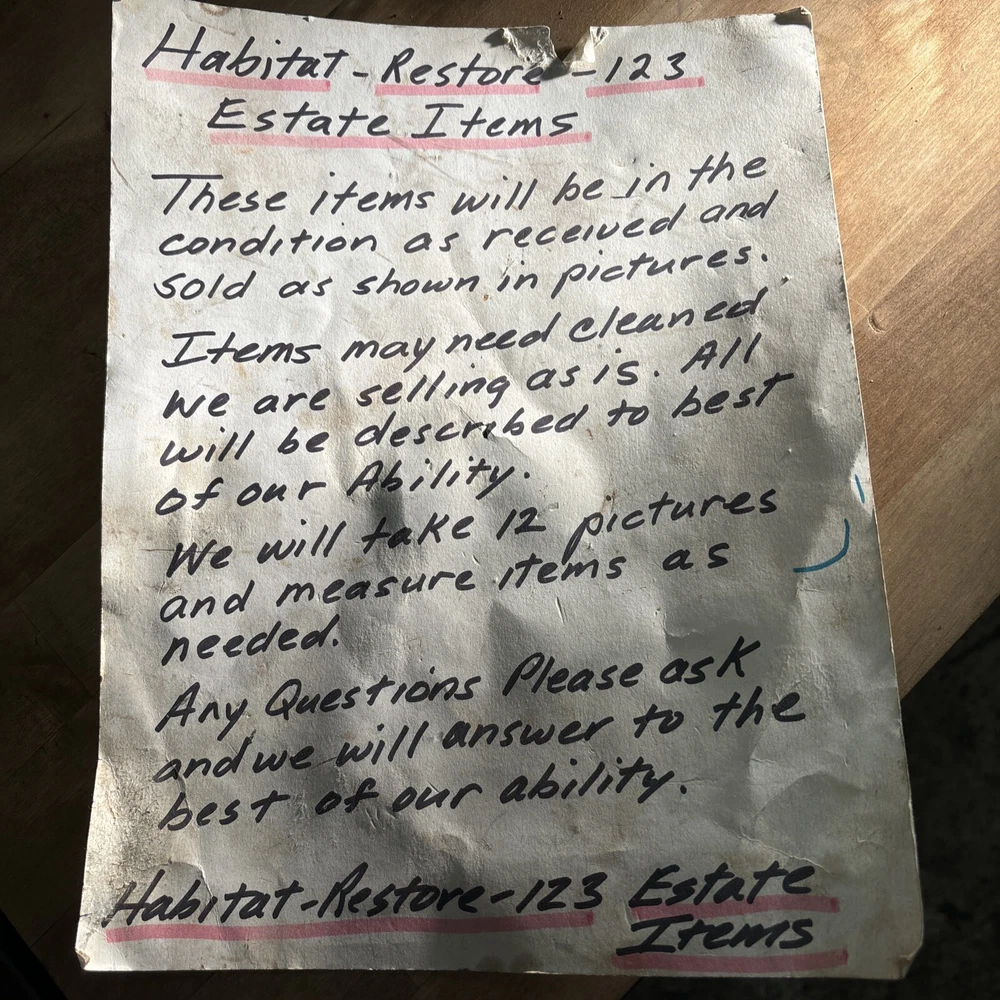 Habitat-Restore-123
Estate Items
These items will be in the
condition as received and
sold as shown in pictures.
Items may need cleaned
we are selling as is. All
will be described to best
of our Ability.
We will take 12 pictures
and measure items as
needed.
Any Questions Please ask
and we will answer to the
best of our ability.
Habitat-Restore-123 Estate
Items